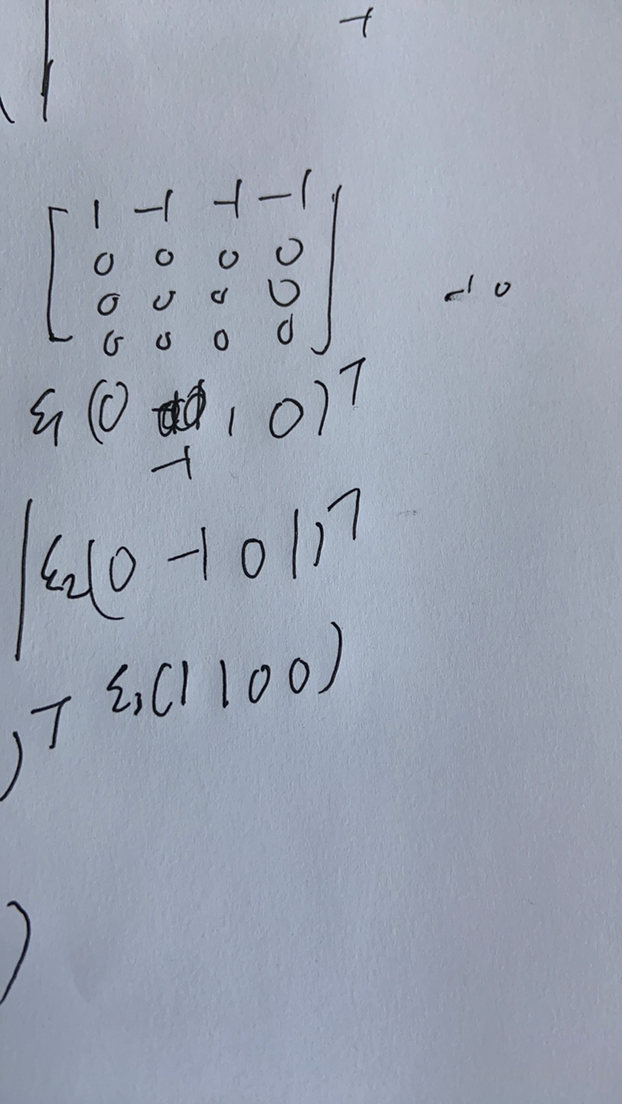 1 -1 -1 -1
0 0 0 0
0 0 0 0
0 0 0 0
-1 0
ξ1 (0 -1 1 0)T
ξ2 (0 -1 0 1)T
ξ3 (1 1 0 0)
T